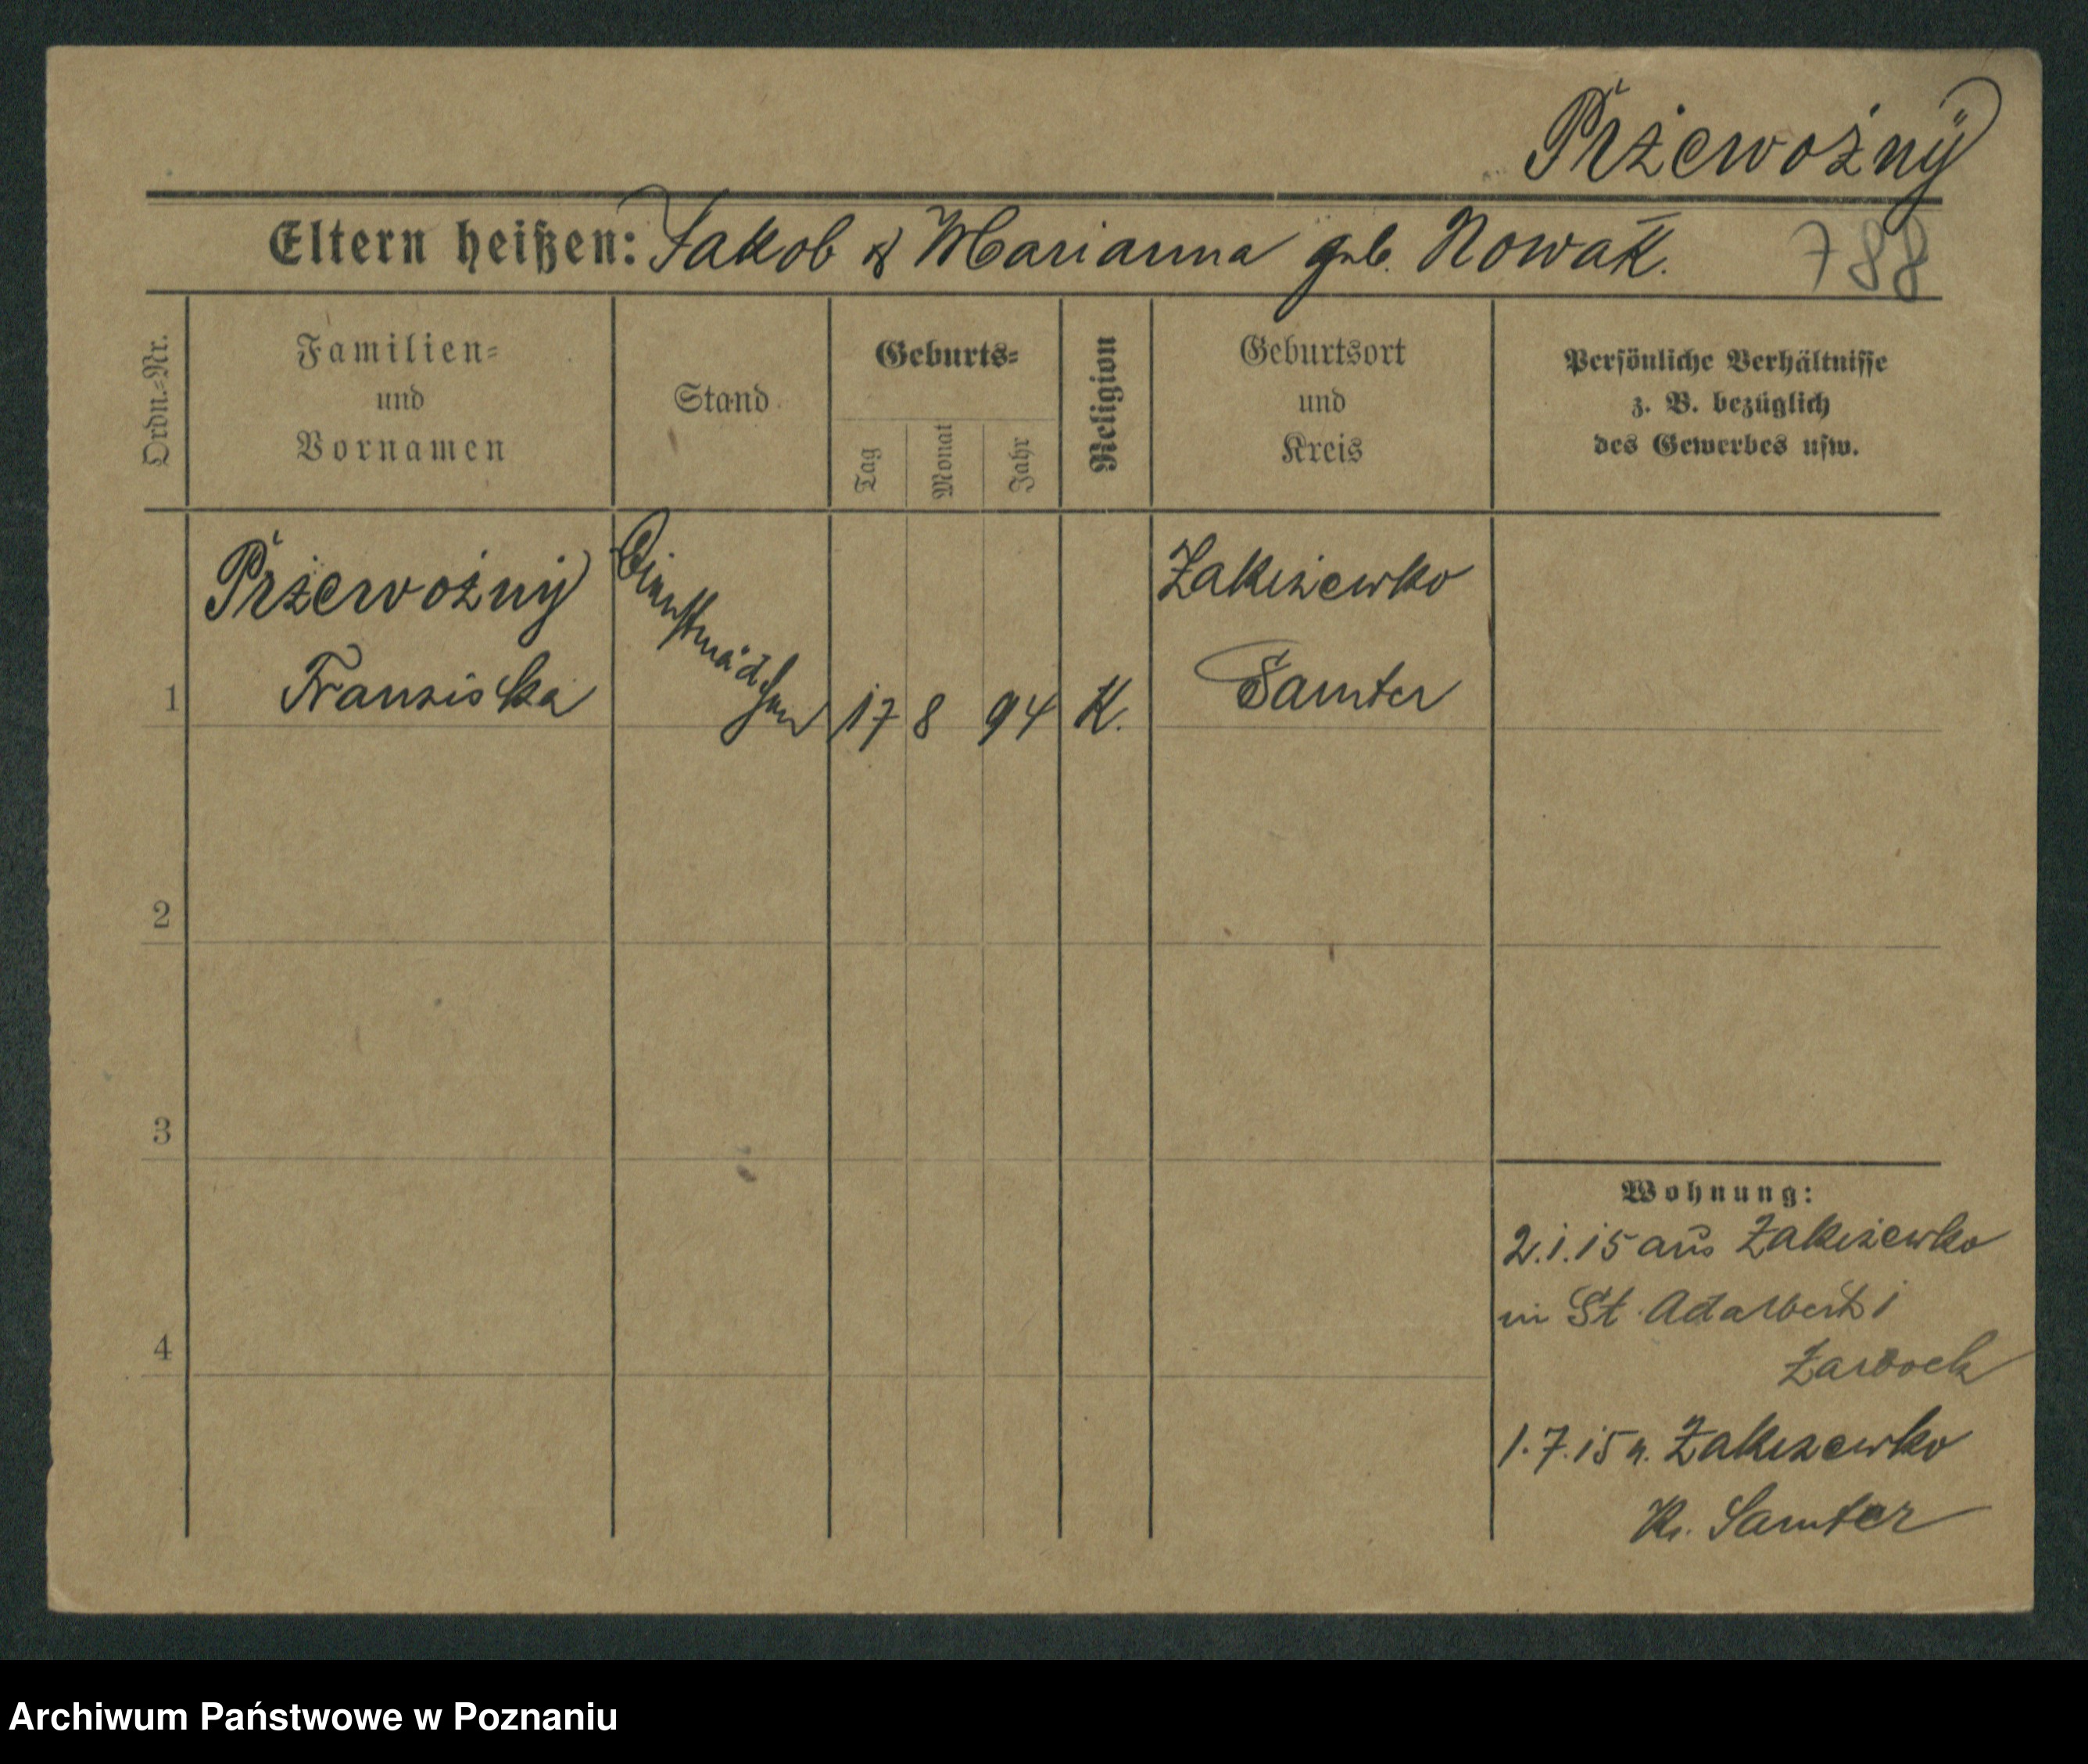 Przewoźny
Eltern heißen: Jakob & Marianna geb. Nowak.
788
Ordn.-Nr.
Familien-
und
Vornamen
Stand
Geburts-
Tag
Monat
Jahr
Religion
Geburtsort
und
Kreis
Persönliche Verhältnisse
z. B. bezüglich
des Gewerbes usw.
1
Przewoźny
Franziska
Dienstmädchen
17
8
94
K.
Zakrzewko
Samter
2
3
4
Wohnung:
2.1.15 aus Zakrzewko
in St Adalbert 1
1.7.15 n. Zakrzewko
Kr. Samter
Archiwum Państwowe w Poznaniu